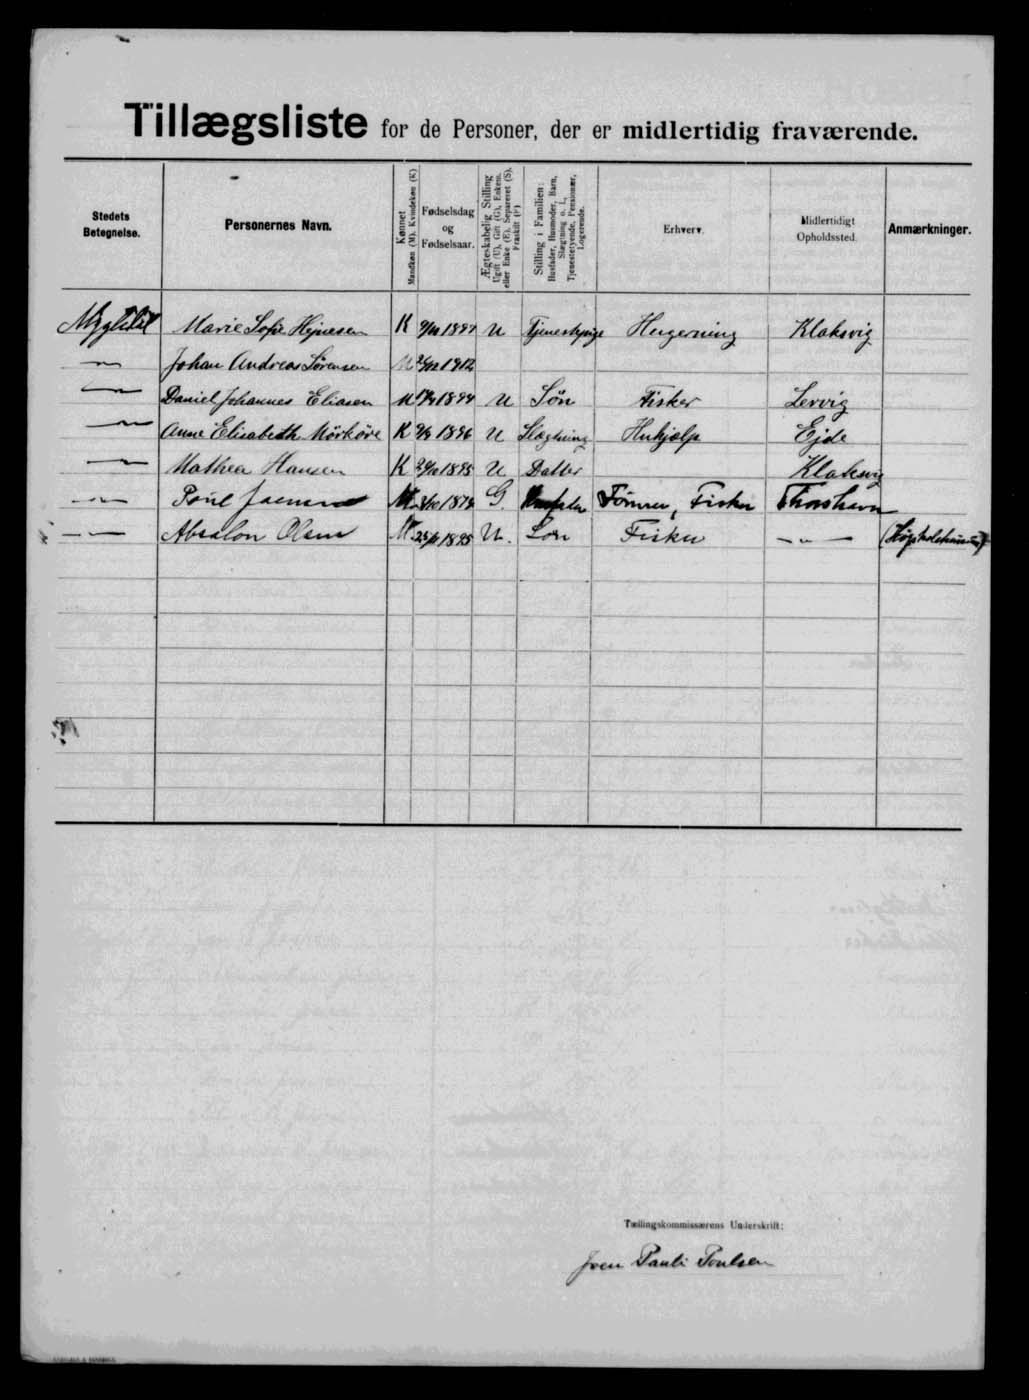 Tillægsliste for de Personer, der er midlertidig fraværende.
Stedets Betegnelse.
Personernes Navn.
Kønnet Mandkøn (M). Kvindekøn (K)
Fødselsdag og Fødselsaar.
Ægteskabelig Stilling Ugift (U), Gift (G), Enkem. eller Enke (E), Separeret (S), Fraskilt (F)
Stilling i Familien: Husfader, Husmoder, Barn, Slægtning o. l., Tjenestetyende, Pensionær, Logerende.
Erhverv.
Midlertidigt Opholdssted.
Anmærkninger.
Marie Sofie Hejnesen K 1897 U Tjenestepige Husgerning Klaksvig
— " — Johan Andreas Sørensen M 1912
— " — Daniel Johannes Eliasen M 1894 U Søn Fisker Lervig
— " — Anne Elisabeth Mörköre K 1896 U Slægtning Huhjælp Ejde
— " — Mathea Hansen K 1895 U Datter Klaksvig
— " — Poul M 1874 G. Fisker Thorshavn
— " — Absalon Olsen M 1895 U. Søn Fisker — " —
Tællingskommissærens Underskrift:
Joen Pauli Poulsen